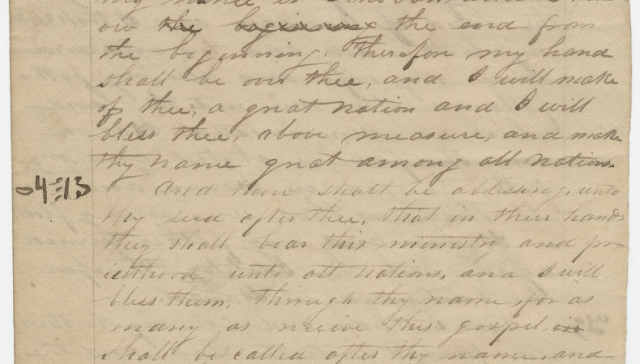 my name is
ow the beginning the end from
the beginning. Therefore my hand
shall be over thee, and I will make
of thee, a great nation and I will
bless thee, above measure, and make
thy name great among all nations.
And thou shall be a blessing, unto
thy seed after thee, that in their hands
they shall bear this ministry and pr-
iesthood unto all nations, and I will
bless them, through thy name, for as
many as receive this gospel, in
shall be called after thy name, and